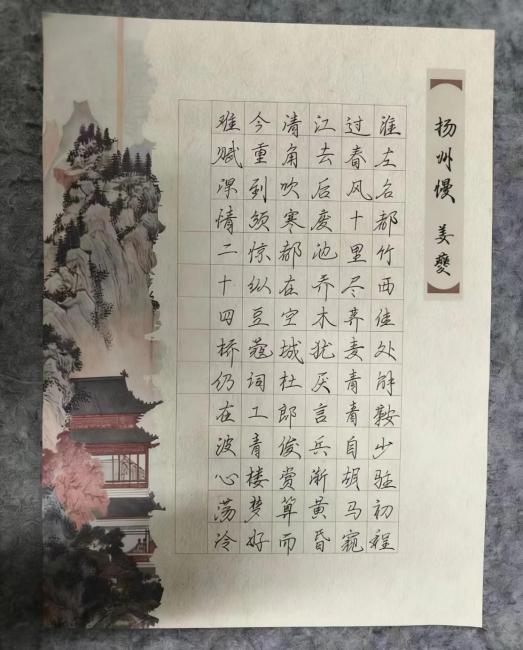 扬州慢 姜夔
淮左名都竹西佳处解鞍少驻初程
过春风十里尽荠麦青青自胡马窥
江去后废池乔木犹厌言兵渐黄昏
清角吹寒都在空城杜郎俊赏算而
今重到须惊纵豆蔻词工青楼梦好
难赋深情二十四桥仍在波心荡冷